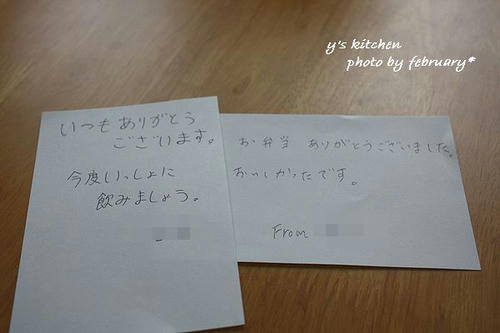 y's kitchen
photo by february*
いつもありがとう
ございます。
今度いっしょに
飲みましょう。
お弁当 ありがとうございました。
おいしかったです。
From